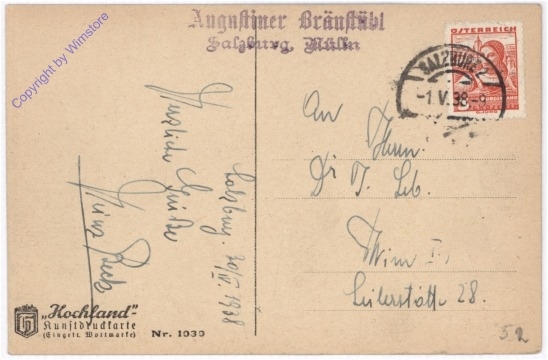 Copyright by Wimstore
Augustiner Bräustübl
Salzburg, Mülln
ÖSTERREICH
SALZBURG 2
-1.V.38-8
Salzburg, 30/IV 1938
Herzliche Grüße
An
Herrn
Dr J. Leb.
Wien I.,
Seilerstätte 28.
"Hochland"-
Kunstdruckkarte
(Eingetr. Wortmarke)
Nr. 1030
52